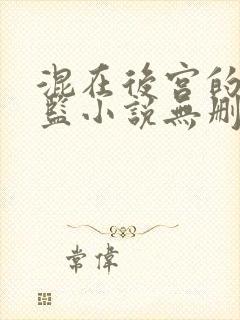 混在後宮的
監小說無刪
常偉